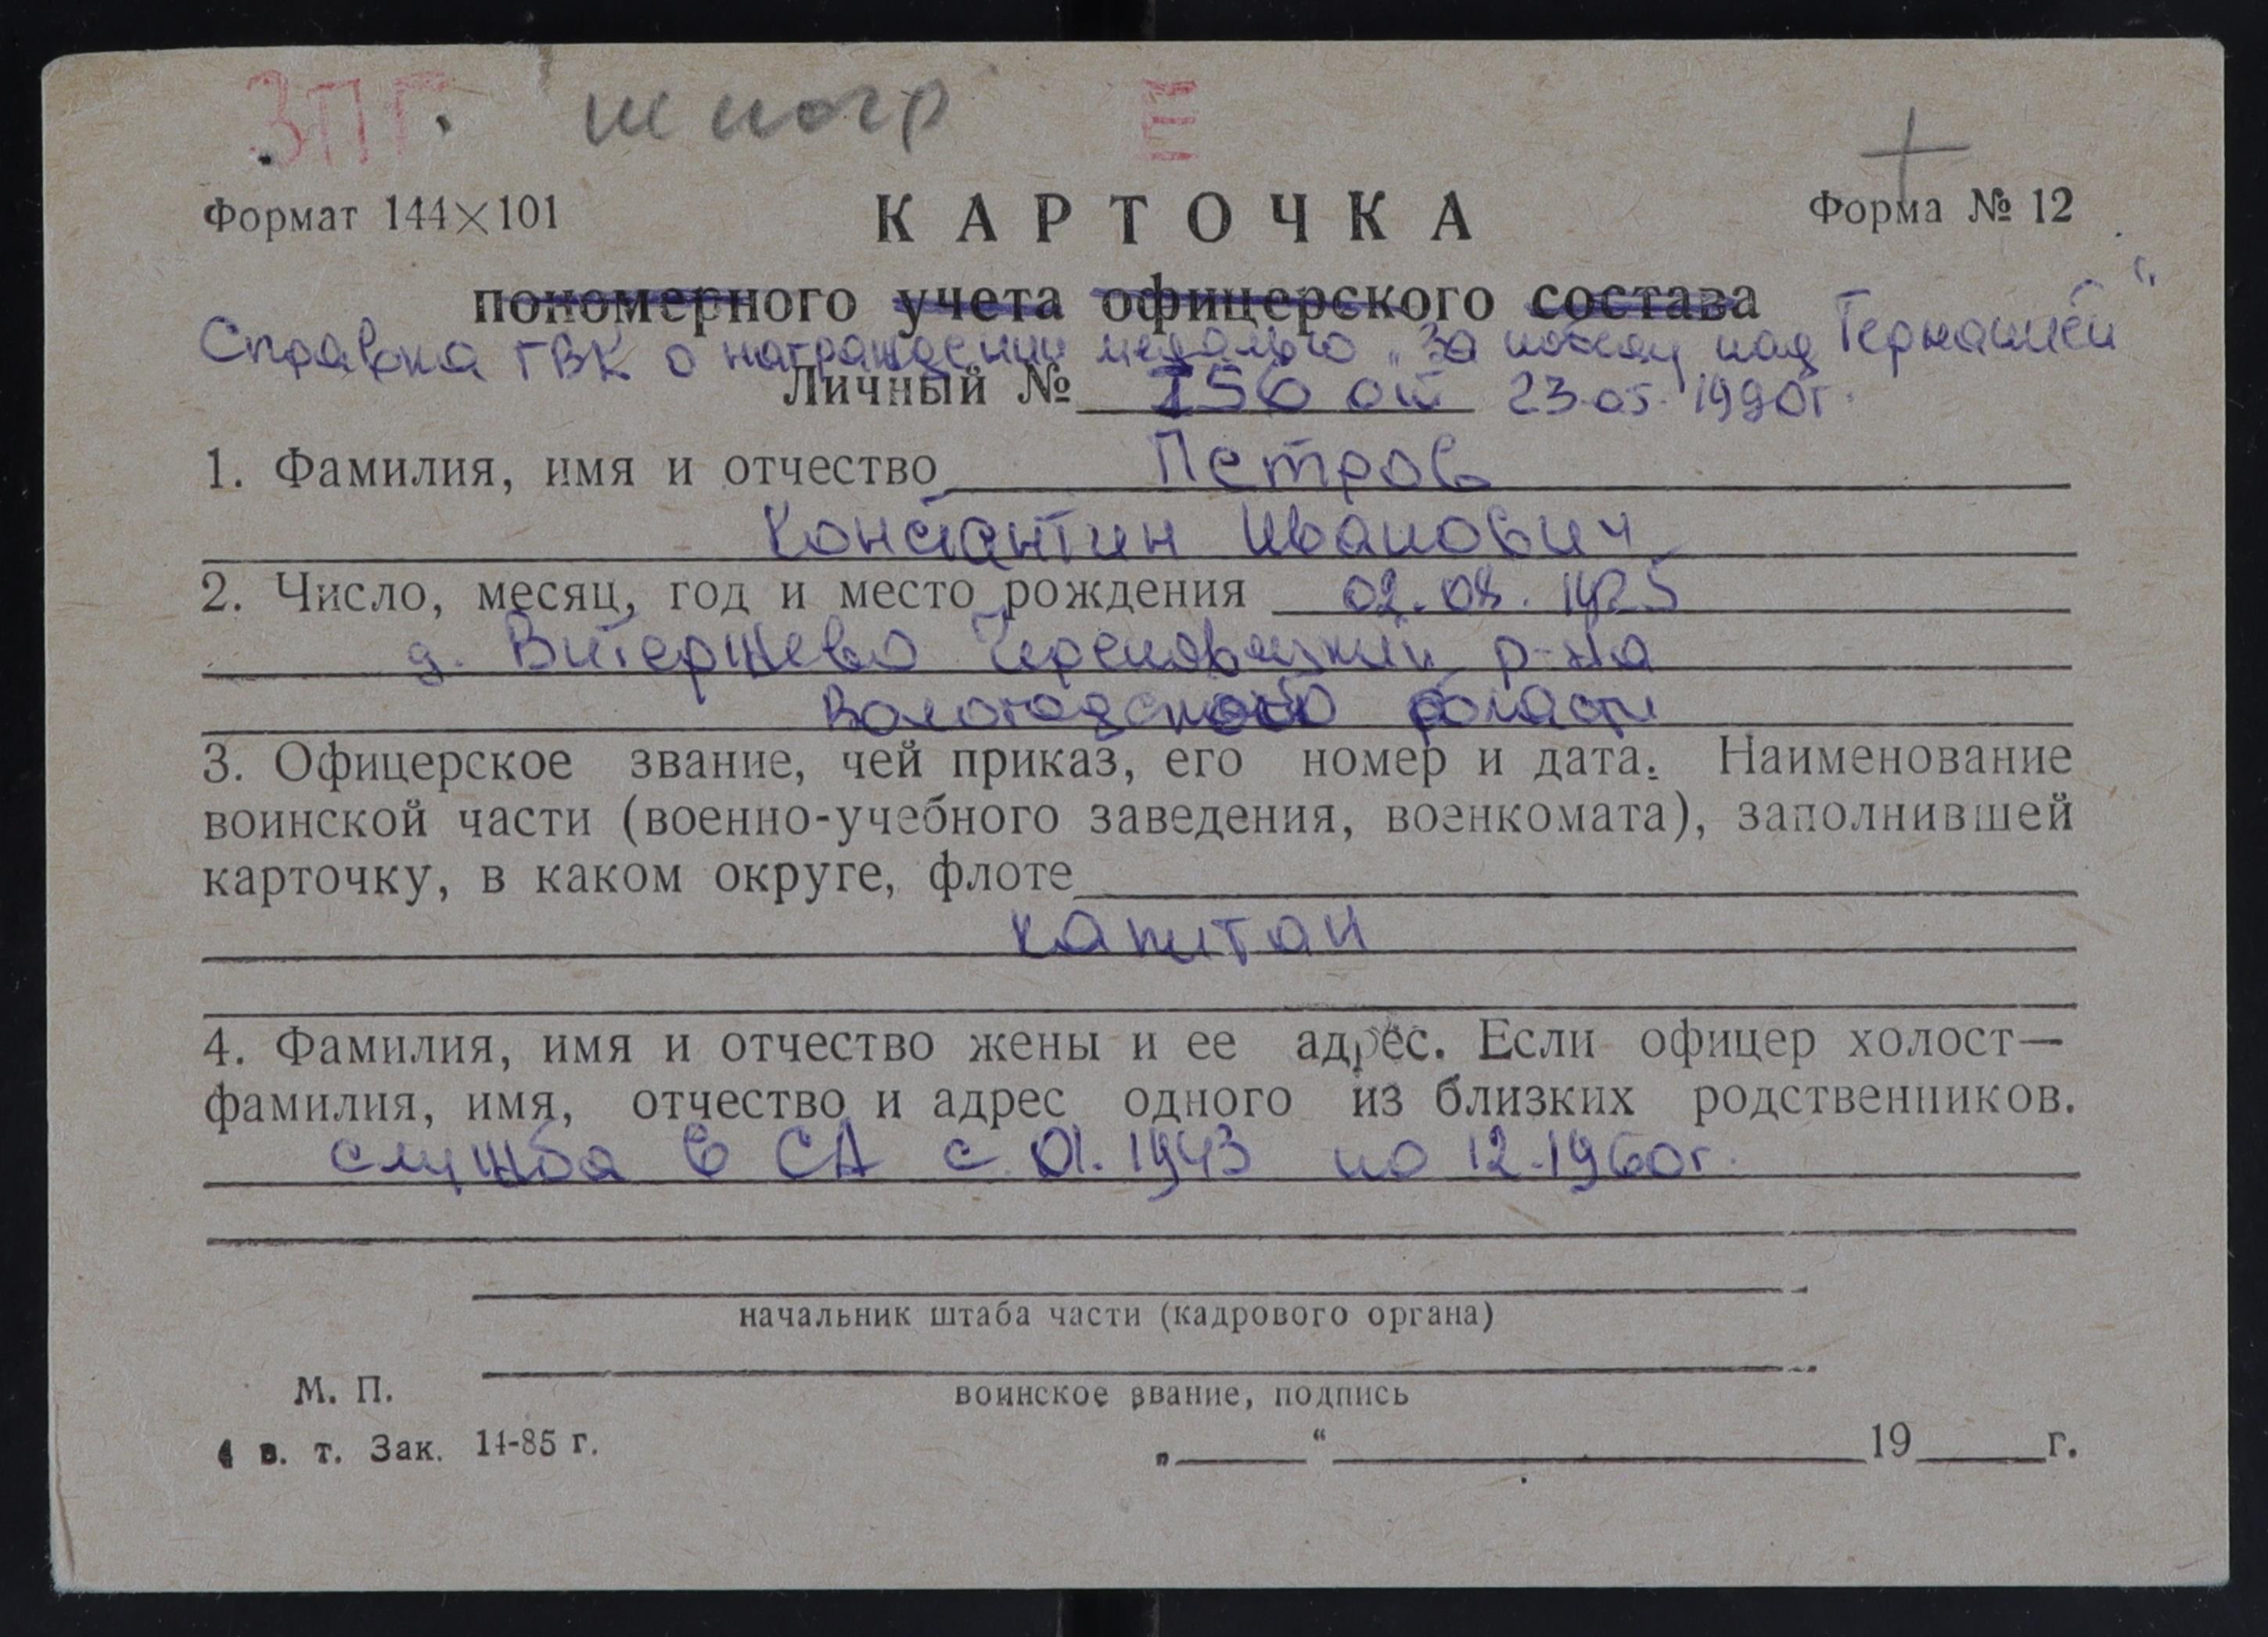 ЗПГ. Е
Формат 144×101 КАРТОЧКА Форма № 12
пономерного учета офицерского состава
Справка ГВК о награждении медалью „За победу над Германией“
Личный № 156 от 23.05.1990г.
1. Фамилия, имя и отчество Петров
Константин Иванович
2. Число, месяц, год и место рождения 02.08.1925
д. Череповецкий р-на
Вологодского области
3. Офицерское звание, чей приказ, его номер и дата. Наименование
воинской части (военно-учебного заведения, военкомата), заполнившей
карточку, в каком округе, флоте
капитан
4. Фамилия, имя и отчество жены и ее адрес. Если офицер холост—
фамилия, имя, отчество и адрес одного из близких родственников.
служба в СА с 01.1943 по 12.1960г.
начальник штаба части (кадрового органа)
М. П.
воинское звание, подпись
4 в. т. Зак. 14-85 г. „ “ 19 г.